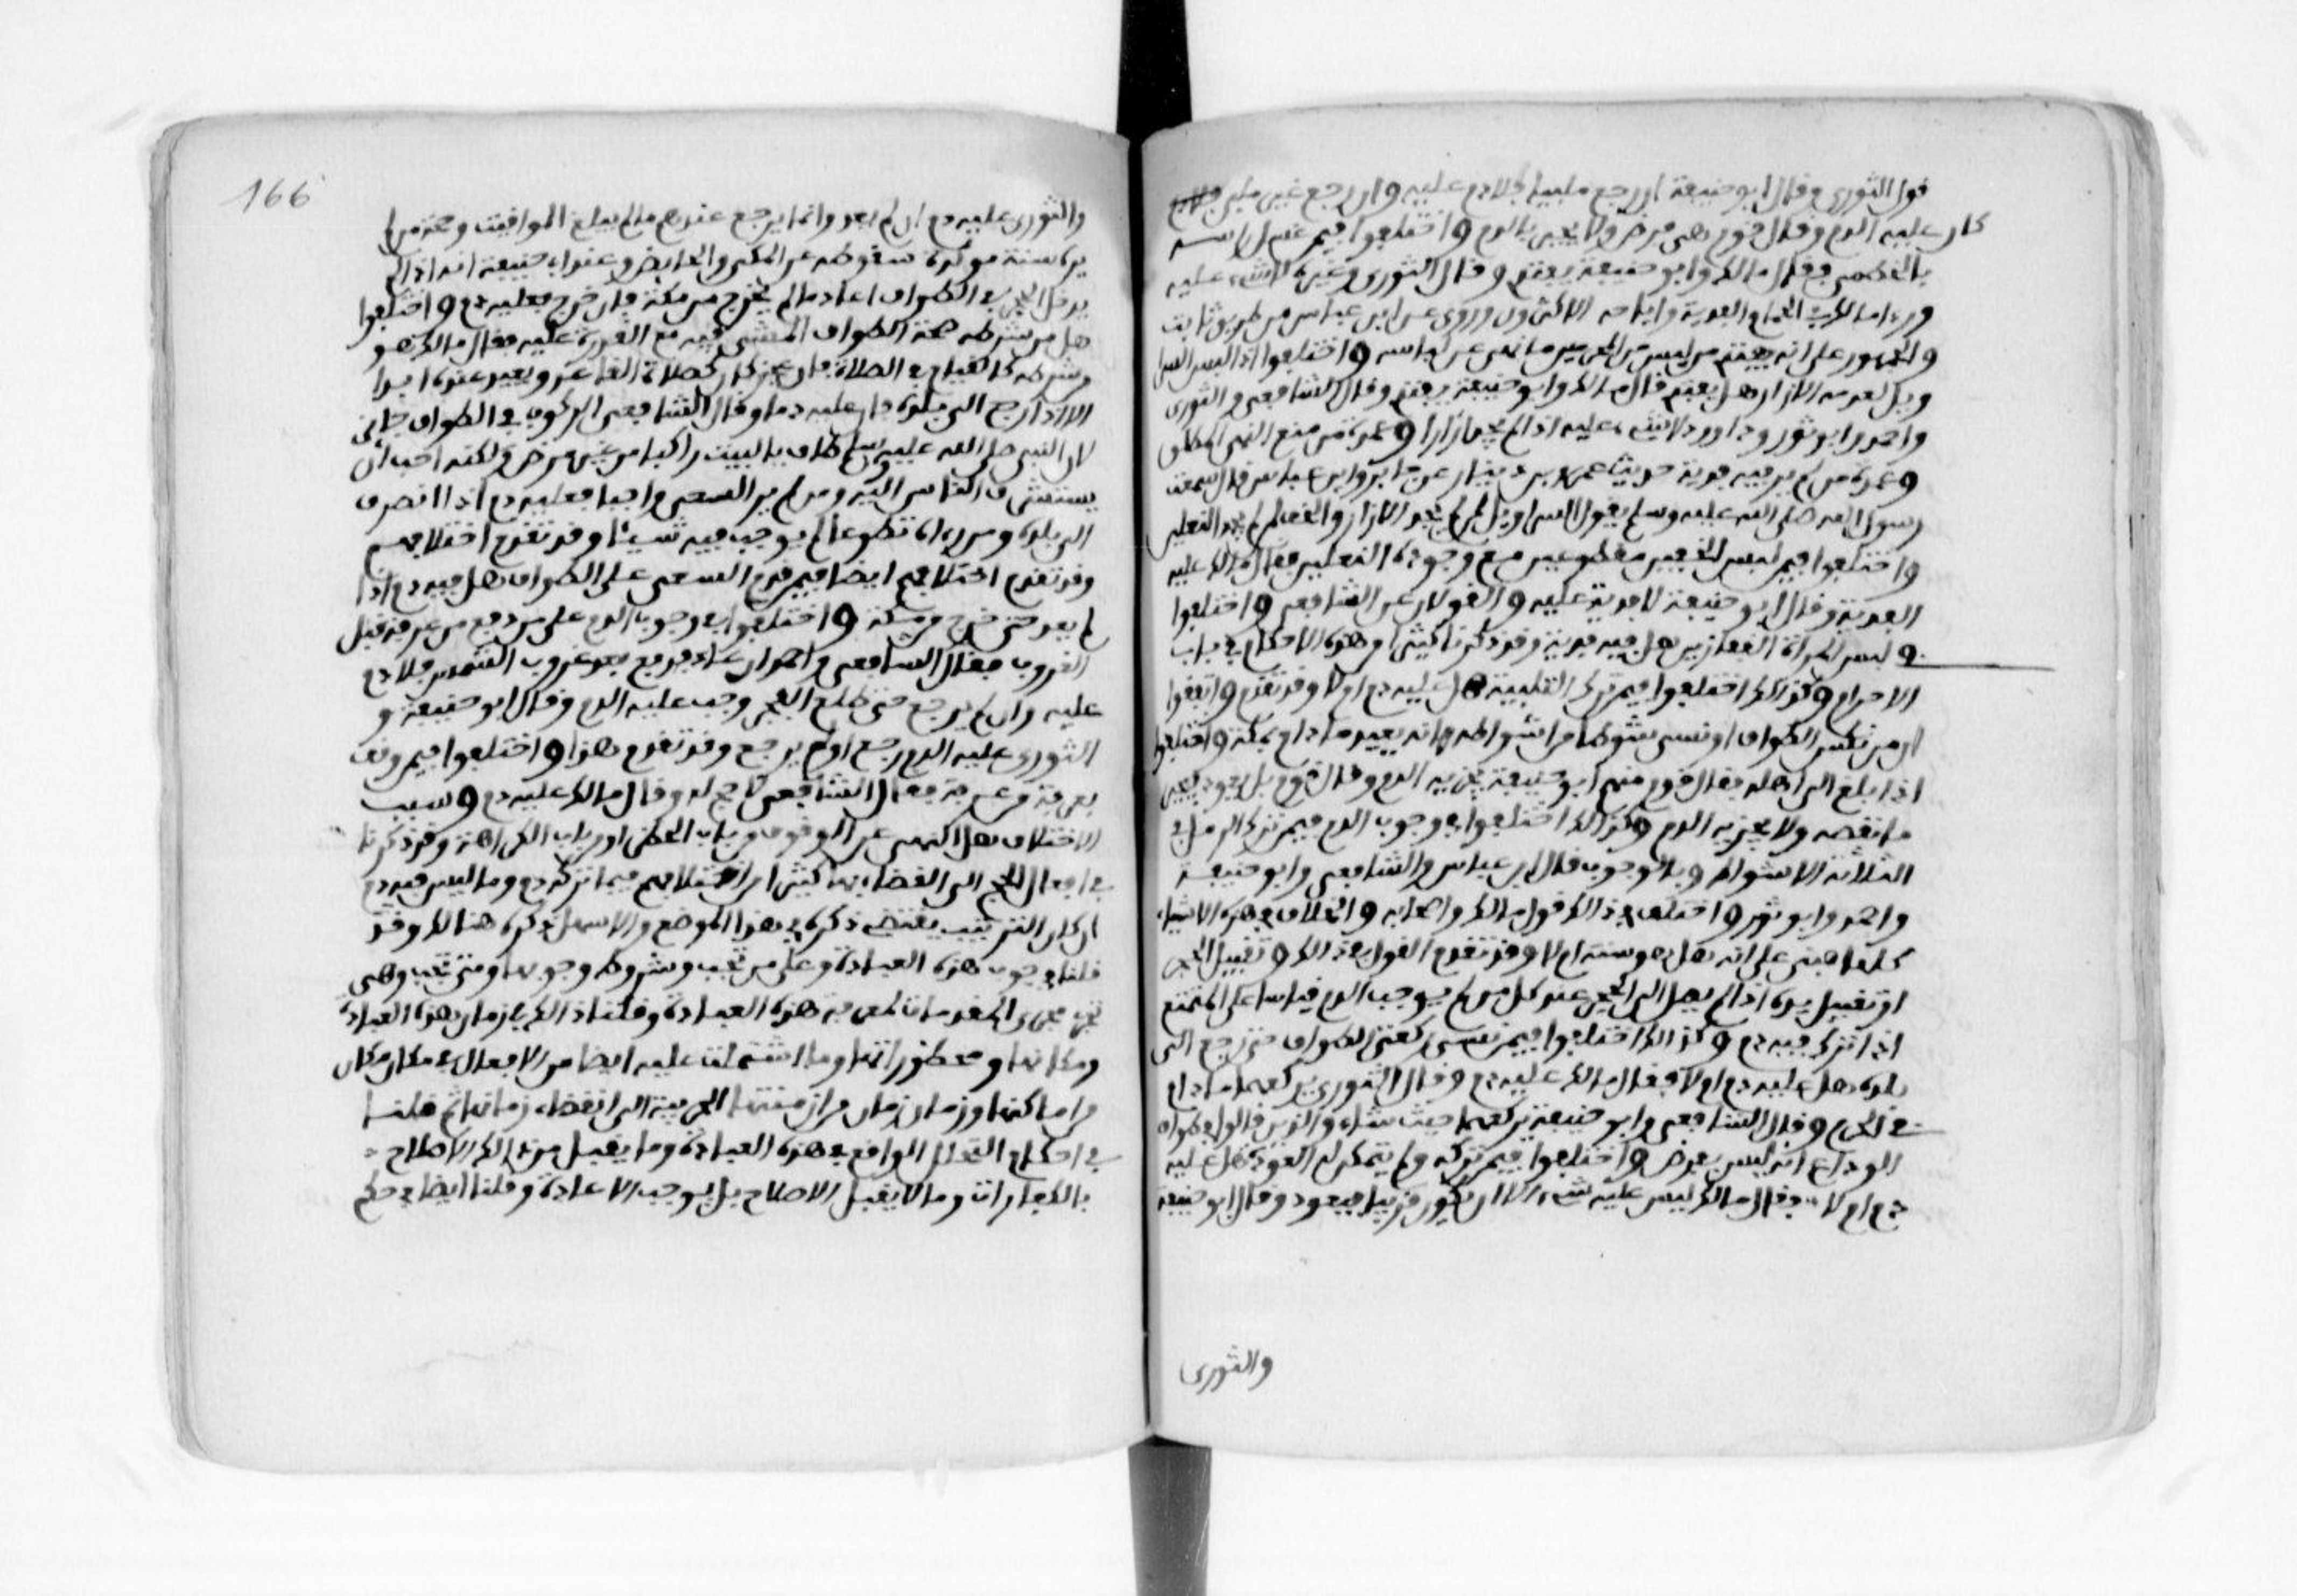 قول الثوري وقال ابو حنيفة ان رجع ملبيا فلا دم عليه وان رجع غير ملب
كان عليه الدم وقال قوم هي فرض ولا يجبر بالدم واختلفوا فيمن غسل راسه
بالخطمي فقال مالك وابو حنيفة يفتدي وقال الثوري وغيره لا شيء عليه
وراى مالك في الحمام الفدية واباحه الاكثرون وروى عن ابن عباس من طريق ثابت
والجمهور على انه يفتدي من لبس من المحرمين ما نهي عن لباسه واختلفوا اذا لبس السرا
ويل لعدمه الازار هل يفتدي فقال مالك وابو حنيفة يفتدي وقال الشافعي والثوري
واحمد وابو ثور وداود لا شيء عليه اذا لم يجد ازارا وعمدة من منع النهي المطلق
وعمدة من لم ير فيه فدية حديث عمرو بن دينار عن جابر وابن عباس قال سمعت
رسول الله صلى الله عليه وسلم يقول السراويل لمن لم يجد الازار والخف لمن لم يجد النعلين
واختلفوا فيمن لبس الخفين مقطوعين مع وجوده النعلين فقال مالك عليه
الفدية وقال ابو حنيفة لا فدية عليه والقولان عن الشافعي واختلفوا
في لبس المراة القفازين هل فيه فدية وقد ذكرنا كثيرا من هذه الاحكام في باب
الاحرام وكذلك اختلفوا فيمن ترك التلبية هل عليه دم ام لا وقد تقدم واتفقوا
ان من نكس الطواف او نسي شوطا من اشواطه انه يعيده ما دام بمكة واختلفوا
اذا بلغ الى اهله فقال قوم منهم ابو حنيفة يجزيه الدم وقال قوم بل يعود ويجبر
ما نقصه ولا يجزيه الدم وكذلك اختلفوا في وجوب الدم فيمن ترك الرمل في
الثلاثة الاشواط وبالوجوب قال ابن عباس والشافعي وابو حنيفة
واحمد وابو ثور واختلف في ذلك قول مالك واصحابه والخلاف في هذه الاشياء
كلها مبني على انه هل هو سنة ام لا وقد تقدم القول في ذلك وتقبيل الحجر
او تقبيل يده اذا لم يصل الى الحجر عند كل من لم يوجب الدم قياسا على المتمتع
اذا تركه فيه دم وكذلك اختلفوا فيمن نسي ركعتي الطواف حتى رجع الى
بلده هل عليه دم ام لا فقال مالك عليه دم وقال الثوري يركعهما ما دام
في الحرم وقال الشافعي وابو حنيفة يركعهما حيث شاء والذين قالوا في طواف
الوداع انه ليس بفرض واختلفوا فيمن تركه ولم يتمكن له العودة هل عليه
دم ام لا فقال مالك ليس عليه شيء الا ان يكون قريبا فيعود وقال ابو حنيفة
والثوري
166
والثوري عليه دم ان لم يعد وانما يرجع عندهم ما لم يبلغ المواقيت وحجة من لم
يره سنة موكدة سقوطه عن المكي والحائض وعند ابي حنيفة انه اذا لم
يدخل الحجر في الطواف اعاد ما لم يخرج من مكة فان خرج فعليه دم واختلفوا
هل من شرطه صحة الطواف المشي فيه مع القدرة عليه فقال مالك هو
شرطه كالقيام في الصلاة فان عجز كان كصلاة القاعد ويعيد عنده ابدا
الا اذا رجع الى بلده فان عليه دما وقال الشافعي الركوب في الطواف جائز
لان النبي صلى الله عليه وسلم طاف بالبيت راكبا من غير مرض ولكنه احب ان
يستشرف الناس اليه ومن لم ير السعي واجبا فعليه دم اذا انصرف
الى بلده ومن راه تطوعا لم يوجب فيه شيئا وقد تقدم اختلافهم
وقد تقدم اختلافهم ايضا فيمن قدم السعي على الطواف هل فيه دم اذا
لم يعد حتى خرج من مكة واختلفوا في وجوب الدم على من دفع من عرفة قبل
الغروب فقال الشافعي واحمد ان عاد فدفع بعد غروب الشمس فلا دم
عليه وان لم يرجع حتى طلع الفجر وجب عليه الدم وقال ابو حنيفة و
الثوري عليه الدم رجع او لم يرجع وقد تقدم هذا واختلفوا فيمن وقف
بعرفة من عرنة فقال الشافعي لا حج له وقال مالك عليه دم وسبب
الاختلاف هل النهي عن الوقوف من باب الحظر او من باب الكراهة وقد ذكرنا
في افعال الحج الى انقضائها كثيرا من اختلافهم فيما تركه دم وما ليس فيه دم
ان كان الترتيب يقتضي ذكره في هذا الموضع والاسهل ذكره هنالك وقد
قلنا في وجوب هذه العبادة وعلى من تجب وشروط وجوبها ومتى تجب وهي
تجري مجرى المقدمات لمعرفة هذه العبادة وقلنا ذلك في زمان هذه العبادة
ومكانها ومحظوراتها وما اشتملت عليه ايضا من الافعال في مكان مكان
من اماكنها وزمان زمان من ازمنتها الجزئية الى انقضاء زمانها ثم قلنا
في احكام التحلل الواقع في هذه العبادة وما يقبل من ذلك الاصلاح
بالكفارات وما لا يقبل الاصلاح بل يوجب الاعادة وقلنا ايضا في حكم